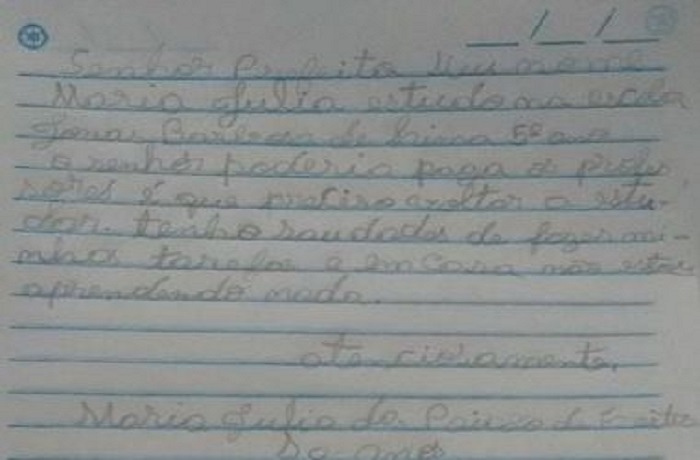 __/__/__
Senhor Prefeito Meu nome
Maria Julia estudo na escola
Jonas Barbosa de 5º ano
o senhor poderia paga os profes
sores é que preciso voltar a estu-
dar. tenho saudades de fazer mi-
nhas tarefas e em casa não estou
aprendendo nada.
ate. cioramente,
Maria Julia de
10 anos